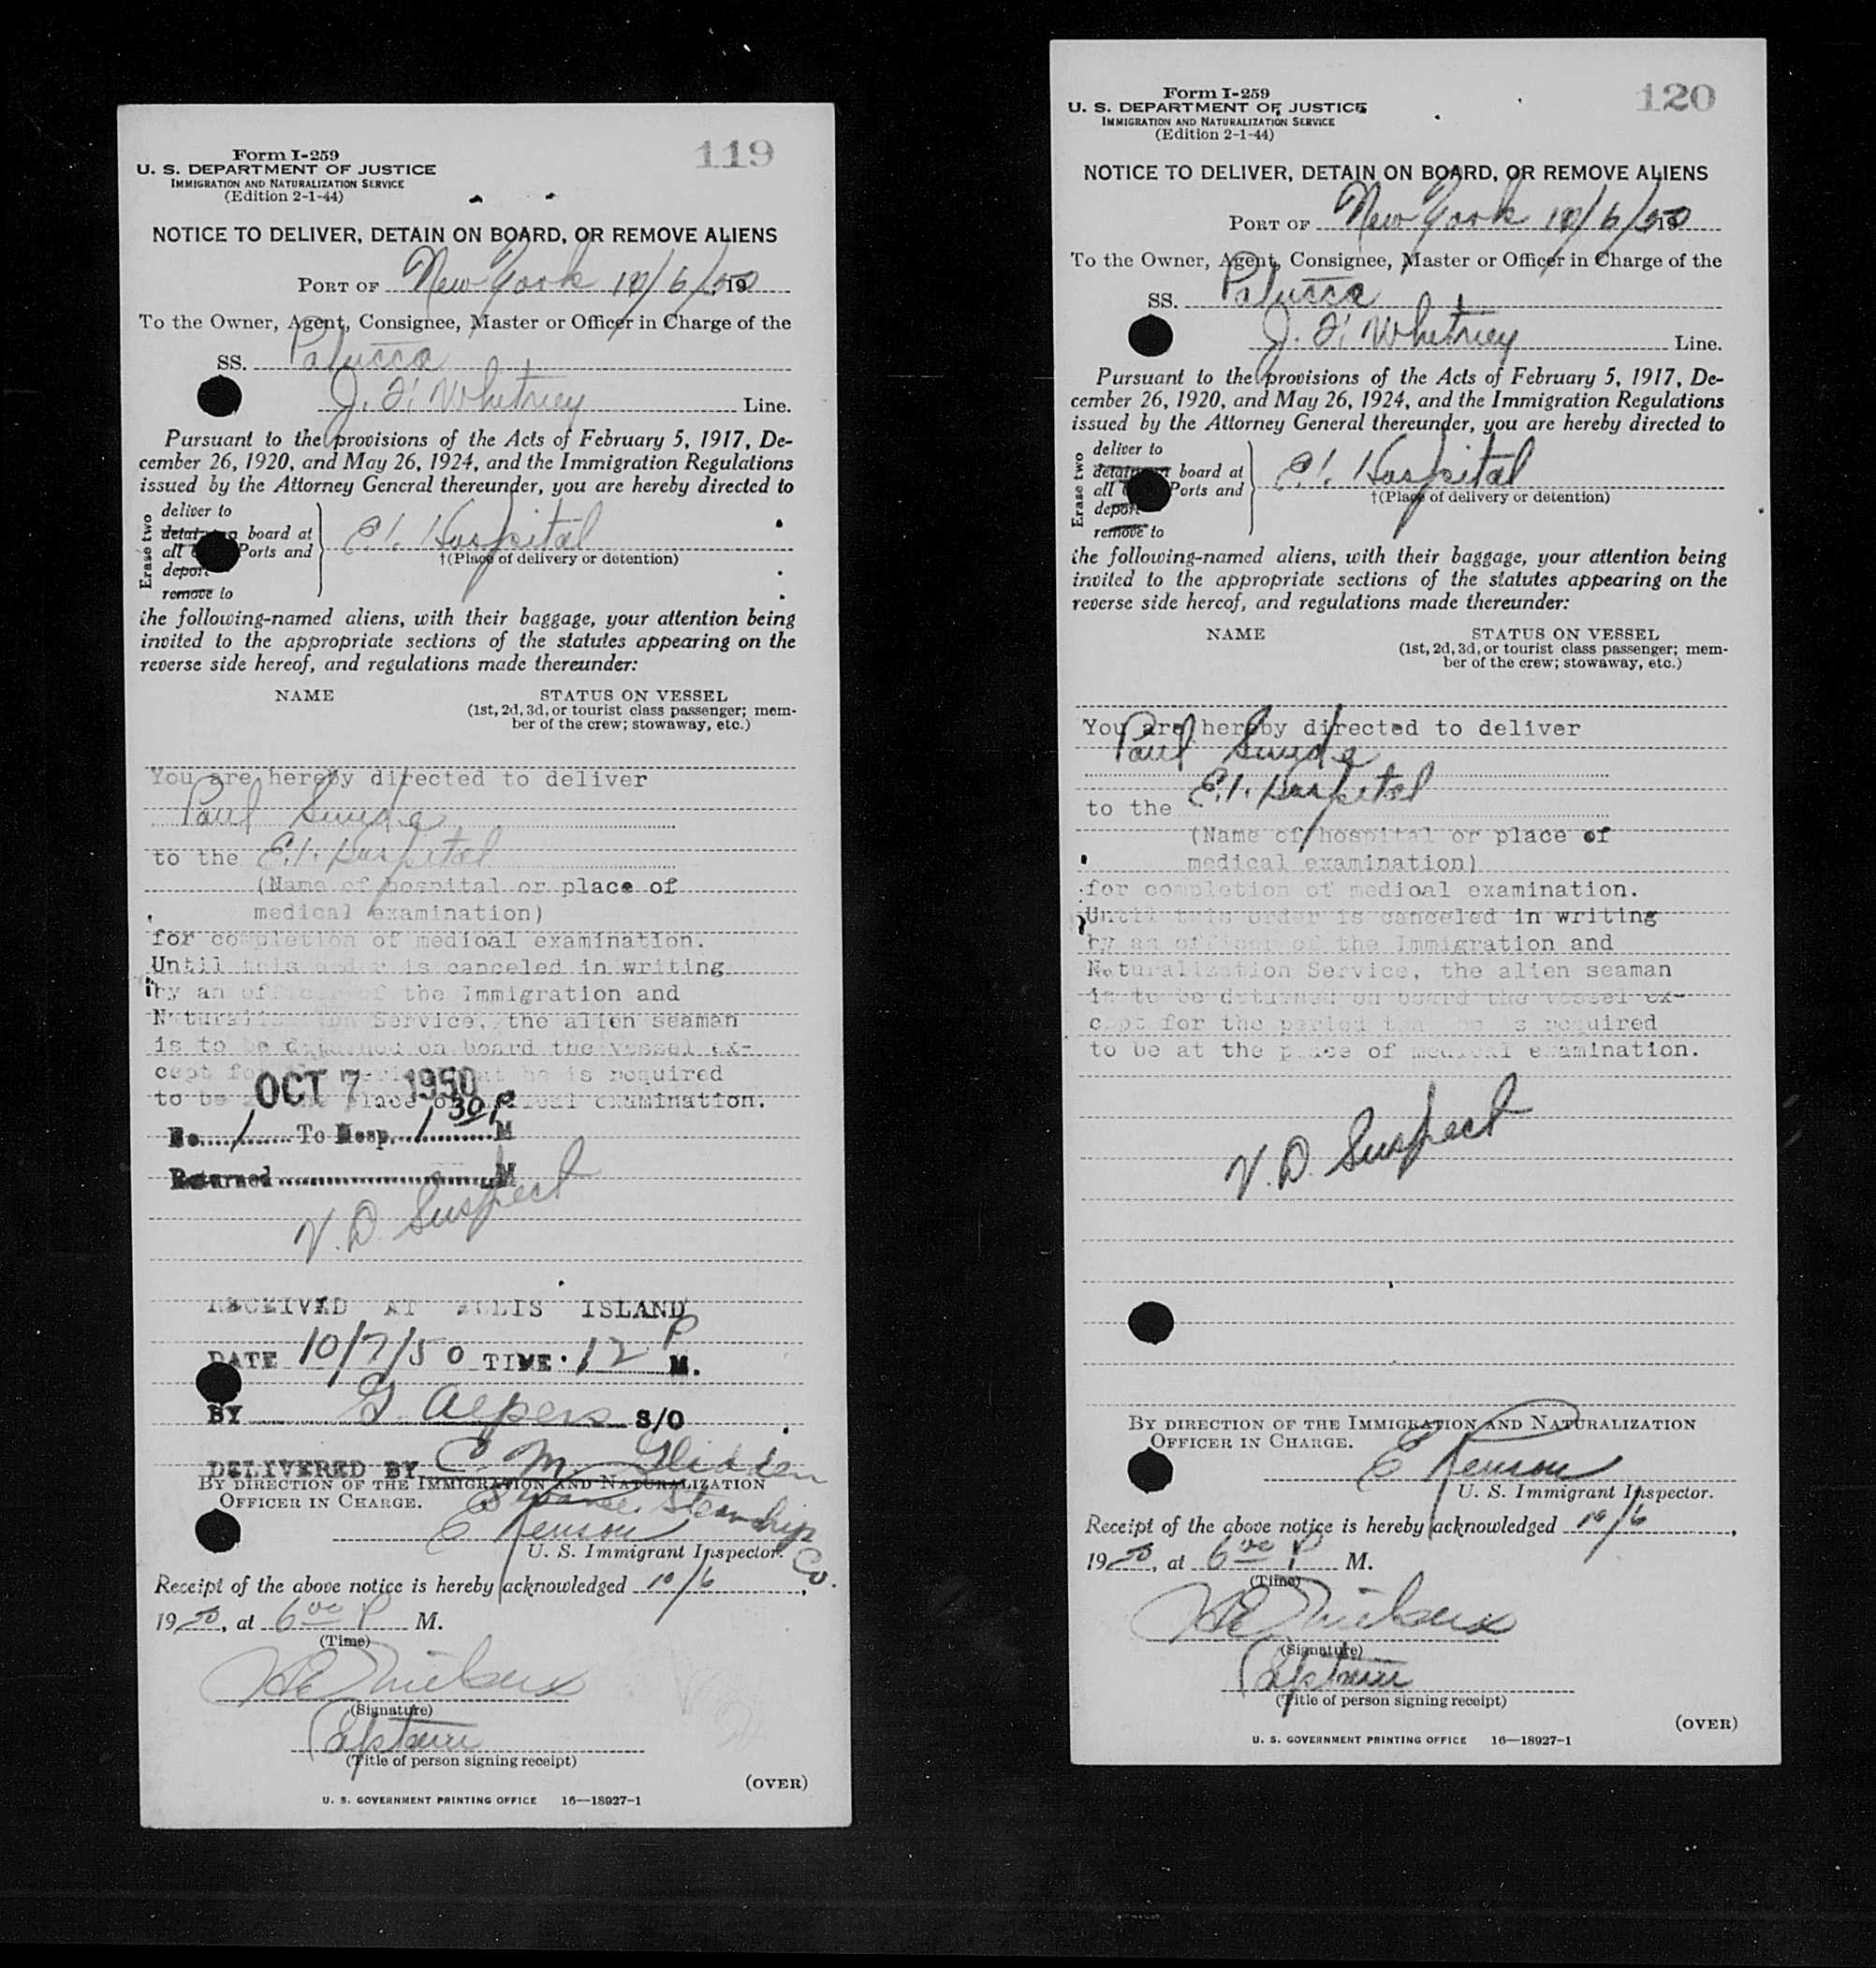 119
Form I-259
U. S. DEPARTMENT OF JUSTICE
IMMIGRATION AND NATURALIZATION SERVICE
(Edition 2-1-44)
NOTICE TO DELIVER, DETAIN ON BOARD, OR REMOVE ALIENS
PORT OF New York 10/6/50 19
To the Owner, Agent, Consignee, Master or Officer in Charge of the
SS. Palucca
J. H. Whitney Line.
Pursuant to the provisions of the Acts of February 5, 1917, De-
cember 26, 1920, and May 26, 1924, and the Immigration Regulations
issued by the Attorney General thereunder, you are hereby directed to
Erase two
deliver to
board at
all Ports and
deport
remove to
E.I. Hospital
†(Place of delivery or detention)
the following-named aliens, with their baggage, your attention being
invited to the appropriate sections of the statutes appearing on the
reverse side hereof, and regulations made thereunder:
NAME STATUS ON VESSEL
(1st, 2d, 3d, or tourist class passenger; mem-
ber of the crew; stowaway, etc.)
You are hereby directed to deliver
Paul
to the E.I. Hospital
(Name of hospital or place of
medical examination)
for completion of medical examination.
Until this order is canceled in writing
by an officer of the Immigration and
Naturalization Service, the alien seaman
is to be detained on board the vessel ex-
cept for the period that he is required
to be at the place of medical examination.
OCT 7 1950
No. 1 To Hosp. 1 30 P M
Returned M
V. D. Suspect
RECEIVED AT ELLIS ISLAND
DATE 10/7/50 TIME 12 P M.
BY G. Alpers S/O
DELIVERED BY C. M. Glidden
Steamship Co.
BY DIRECTION OF THE IMMIGRATION AND NATURALIZATION
OFFICER IN CHARGE.
E Renson
U. S. Immigrant Inspector.
Receipt of the above notice is hereby acknowledged 10/6,
19 50, at 6 00 P M.
(Time)
(Signature)
Captain
(Title of person signing receipt)
(OVER)
U. S. GOVERNMENT PRINTING OFFICE 16—18927-1
120
Form I-259
U. S. DEPARTMENT OF JUSTICE
IMMIGRATION AND NATURALIZATION SERVICE
(Edition 2-1-44)
NOTICE TO DELIVER, DETAIN ON BOARD, OR REMOVE ALIENS
PORT OF New York 10/6/50 19
To the Owner, Agent, Consignee, Master or Officer in Charge of the
SS. Palucca
J. H. Whitney Line.
Pursuant to the provisions of the Acts of February 5, 1917, De-
cember 26, 1920, and May 26, 1924, and the Immigration Regulations
issued by the Attorney General thereunder, you are hereby directed to
Erase two
deliver to
board at
all Ports and
deport
remove to
E.I. Hospital
†(Place of delivery or detention)
the following-named aliens, with their baggage, your attention being
invited to the appropriate sections of the statutes appearing on the
reverse side hereof, and regulations made thereunder:
NAME STATUS ON VESSEL
(1st, 2d, 3d, or tourist class passenger; mem-
ber of the crew; stowaway, etc.)
You are hereby directed to deliver
Paul
to the E.I. Hospital
(Name of hospital or place of
medical examination)
for completion of medical examination.
Until this order is canceled in writing
by an officer of the Immigration and
Naturalization Service, the alien seaman
is to be detained on board the vessel ex-
cept for the period that he is required
to be at the place of medical examination.
V. D. Suspect
BY DIRECTION OF THE IMMIGRATION AND NATURALIZATION
OFFICER IN CHARGE.
E Renson
U. S. Immigrant Inspector.
Receipt of the above notice is hereby acknowledged 10/6,
19 50, at 6 00 P M.
(Time)
(Signature)
Captain
(Title of person signing receipt)
(OVER)
U. S. GOVERNMENT PRINTING OFFICE 16—18927-1